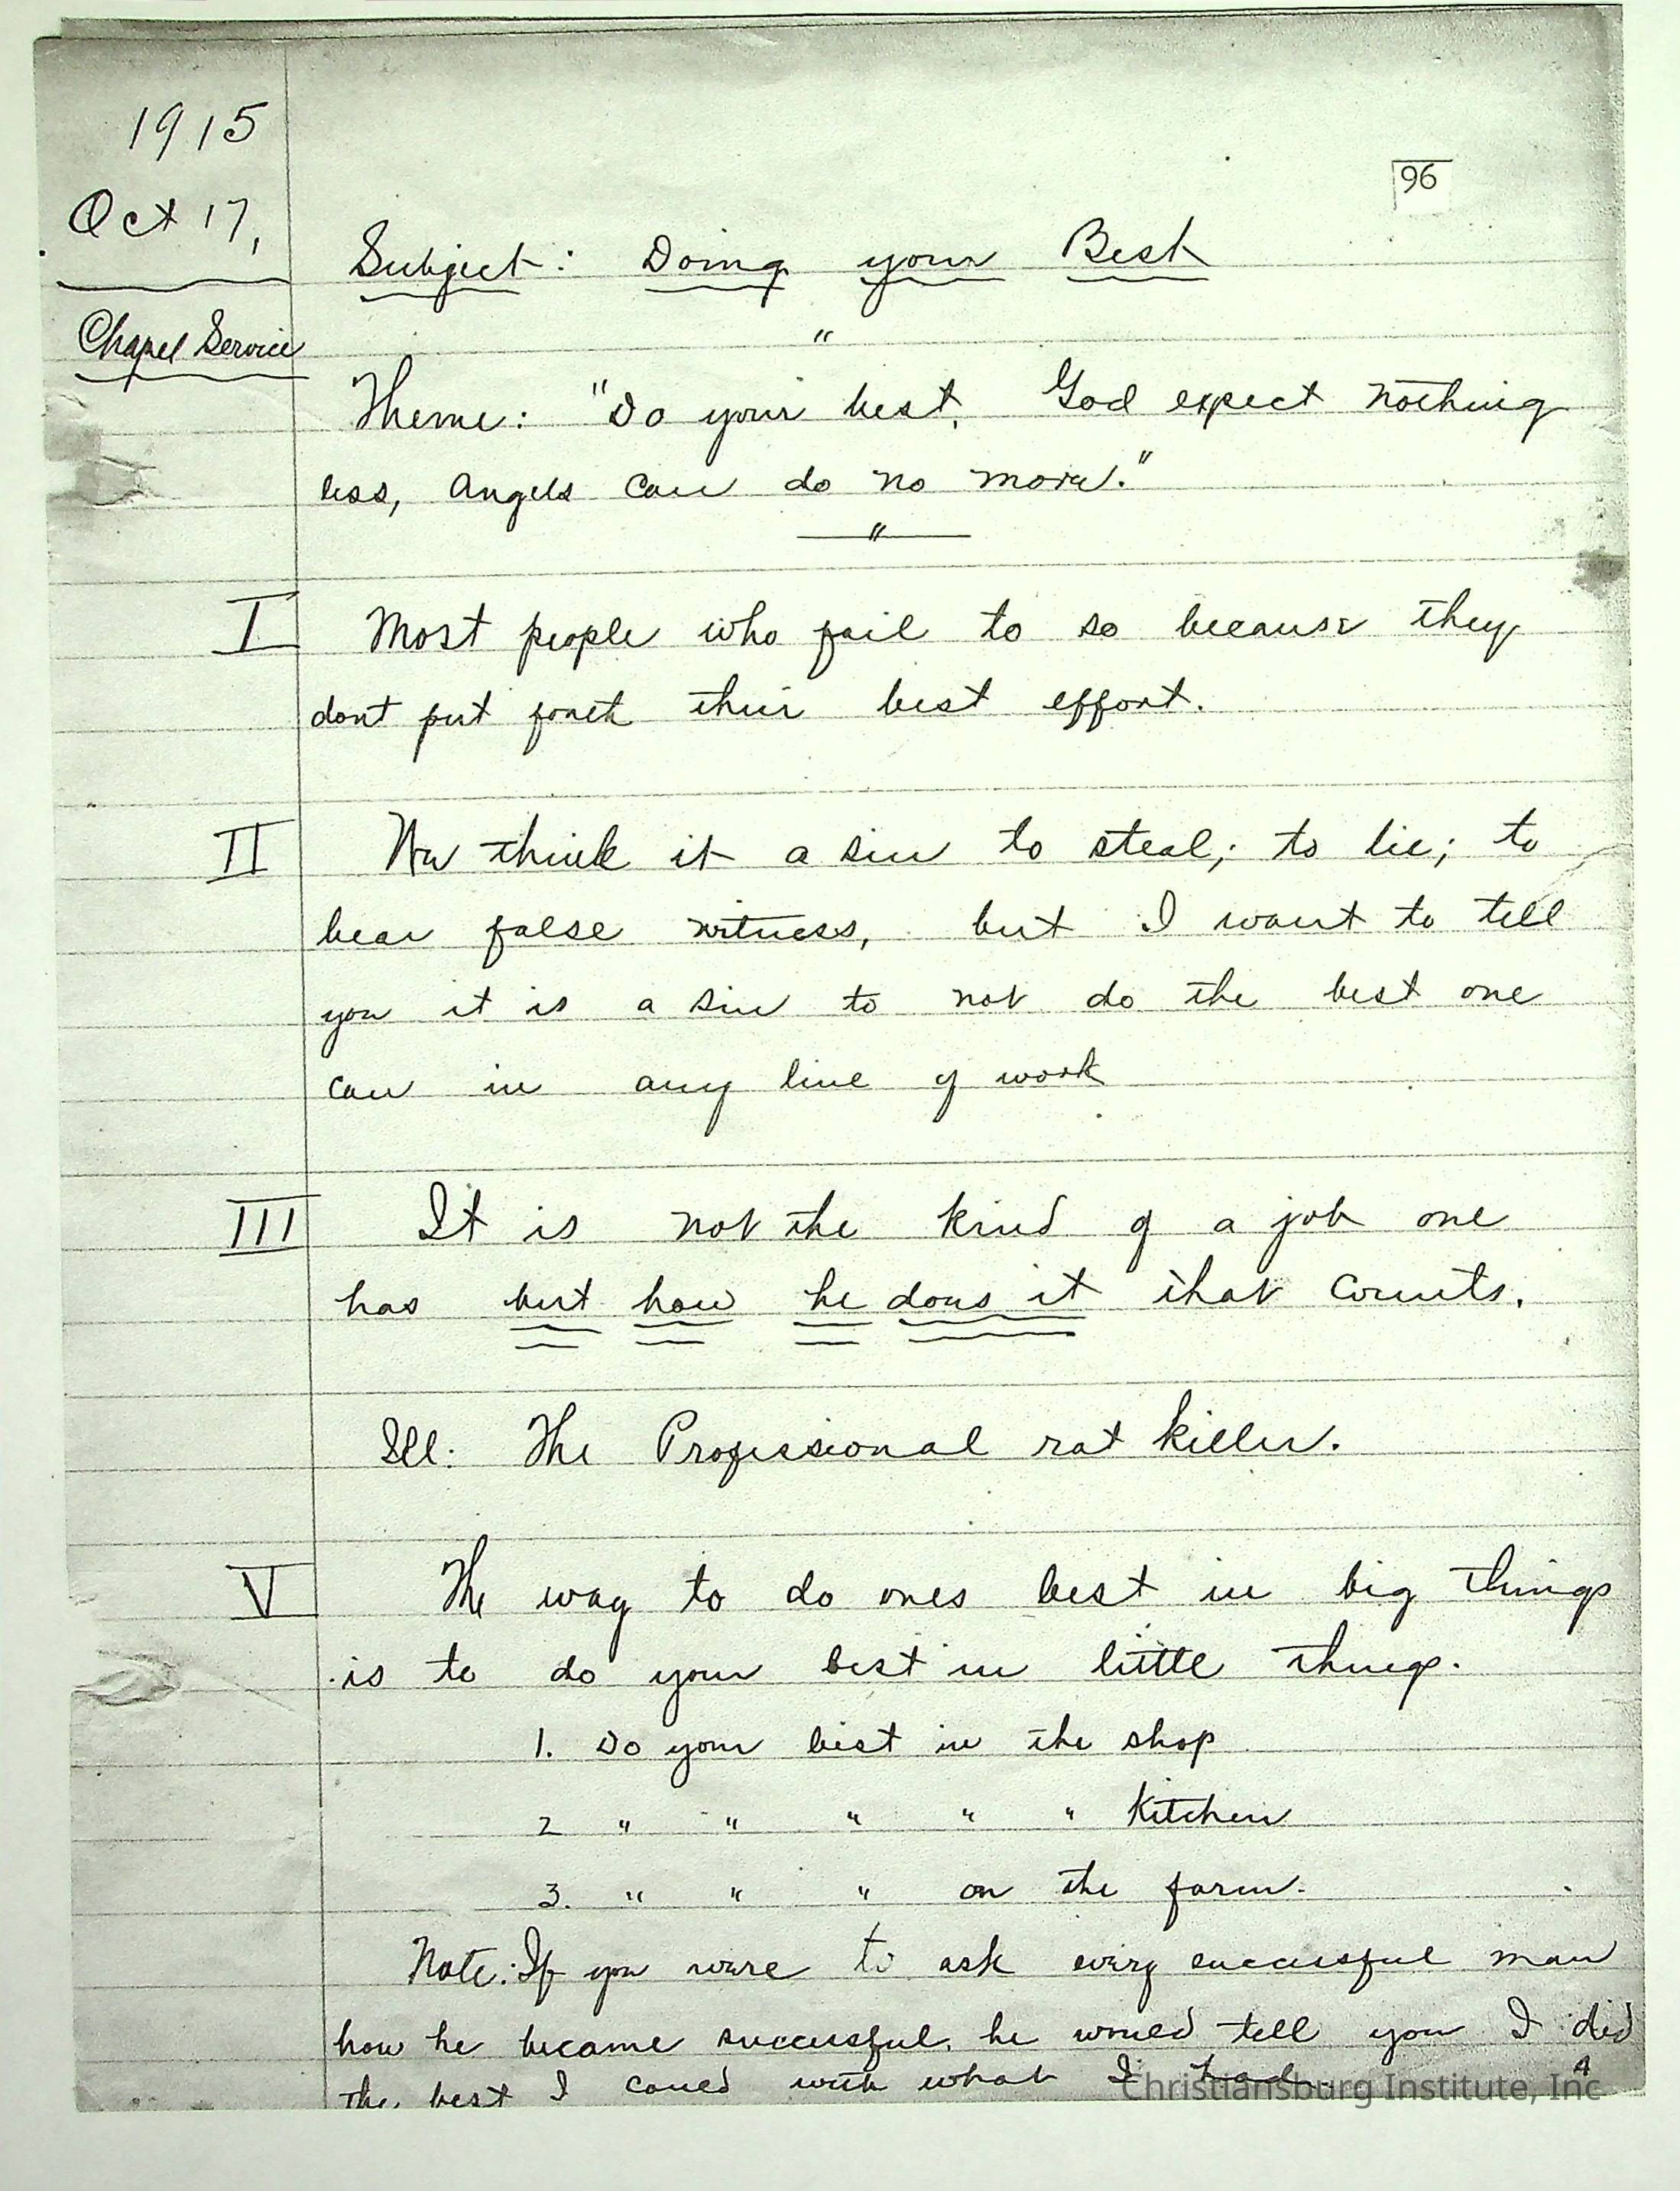 1915
96
Oct 17,
Subject: Doing your Best
Chapel Service
"
Theme: "Do your best, God expect nothing
less, Angels can do no more."
"
I Most people who fail to so because they
dont put forth their best effort.
II We think it a sin to steal; to lie; to
bear false witness, but I want to tell
you it is a sin to not do the best one
can in any line of work
III It is not the kind of a job one
has but how he does it that counts.
Ill: The Professional rat killer.
V The way to do ones best in big things
is to do your best in little things.
1. Do your best in the shop
2 " " " " " Kitchen
3. " " " on the farm.
Note: If you were to ask every successful man
how he became successful, he would tell you I did
the best I could with what I had.
4
Christiansburg Institute, Inc